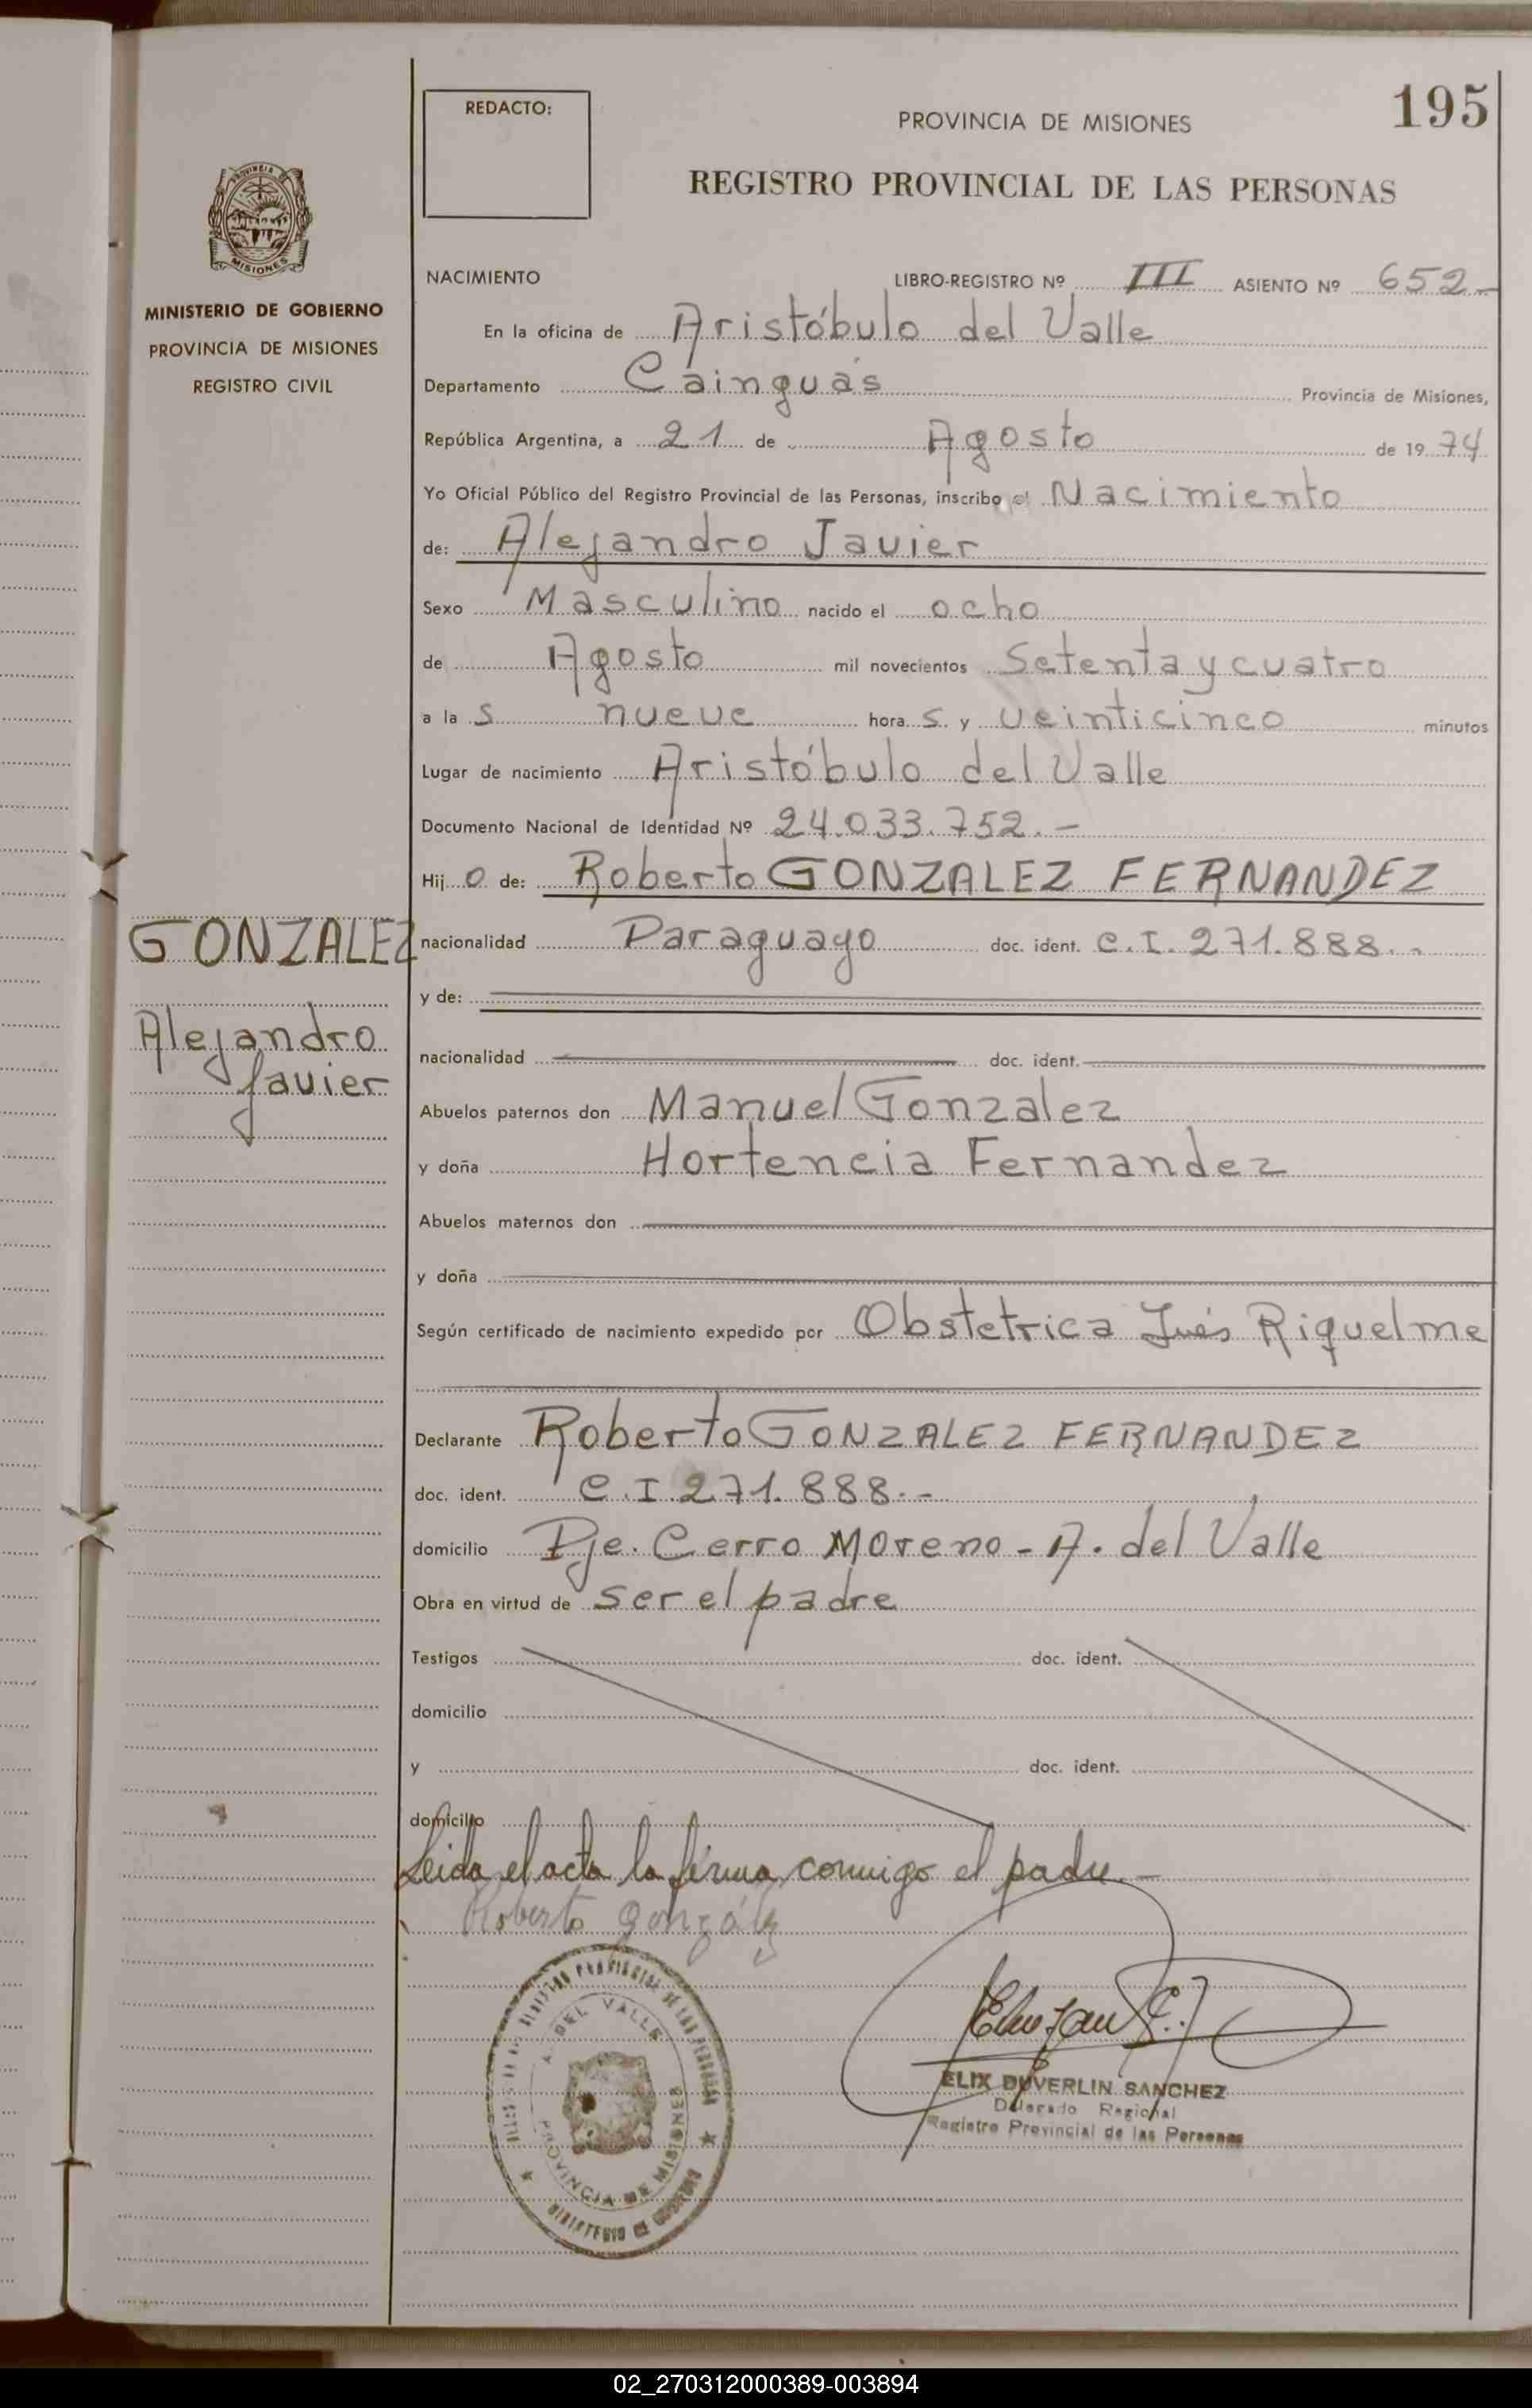 195
REDACTO:
PROVINCIA DE MISIONES
REGISTRO PROVINCIAL DE LAS PERSONAS
PROVINCIA DE
MISIONES
MINISTERIO DE GOBIERNO
PROVINCIA DE MISIONES
REGISTRO CIVIL
NACIMIENTO LIBRO-REGISTRO Nº III ASIENTO Nº 652-
En la oficina de Aristóbulo del Valle
Departamento Cainguás Provincia de Misiones,
República Argentina, a 21 de Agosto de 19 74
Yo Oficial Público del Registro Provincial de las Personas, inscribo el Nacimiento
de: Alejandro Javier
Sexo Masculino nacido el ocho
de Agosto mil novecientos Setenta y cuatro
a la s nueve hora s y veinticinco minutos
Lugar de nacimiento Aristóbulo del Valle
Documento Nacional de Identidad Nº 24.033.752.-
Hij o de: Roberto GONZALEZ FERNANDEZ
GONZALEZ
Alejandro
Javier
nacionalidad Paraguayo doc. ident. C.I. 271.888.-
y de:
nacionalidad doc. ident.
Abuelos paternos don Manuel Gonzalez
y doña Hortencia Fernandez
Abuelos maternos don
y doña
Según certificado de nacimiento expedido por Obstetrica Inés Riquelme
Declarante Roberto GONZALEZ FERNANDEZ
doc. ident. C.I 271.888.-
domicilio Pje. Cerro Moreno - A. del Valle
Obra en virtud de ser el padre
Testigos doc. ident.
domicilio
y doc. ident.
domicilio
Leida el acta la firma conmigo el padre.-
Roberto González
REGISTRO PROVINCIAL DE LAS PERSONAS
A. DEL VALLE
PROVINCIA DE MISIONES
MINISTERIO DE GOBIERNO
ELIX DUVERLIN SANCHEZ
Delegado Regional
Registro Provincial de las Personas
02_270312000389-003894